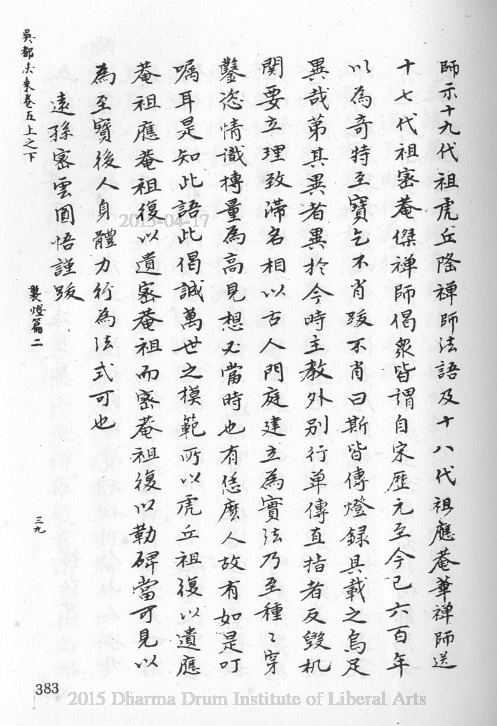 師示十九代祖虎丘隆禪師法語及十八代祖應菴華禪師送
十七代祖密菴傑禪師偈衆皆謂自宋歷元至今已六百年
以為奇特至寶乞不肖跋不肖曰斯皆傳燈錄具載之烏足
異哉第其異者異於今時主教外別行單傳直指者反毀机
関要辛理致滞名相以古人門庭建立為實法乃至種〻穿
鑿恣情識摶量為高見想必當時也有恁麽人故有如是叮
嘱耳是知此語此偈誠萬世之模範所以虎丘祖復以遺應
菴祖應菴祖復以遺密菴祖而密菴祖復以勒碑當可見以
為至寶後人身體力行為法式可也
遠孫密雲圓悟謹跋
吳都法乘卷五上之下
襲燈篇二
三九
383
2013-04-17
2015 Dharma Drum Institute of Liberal Arts